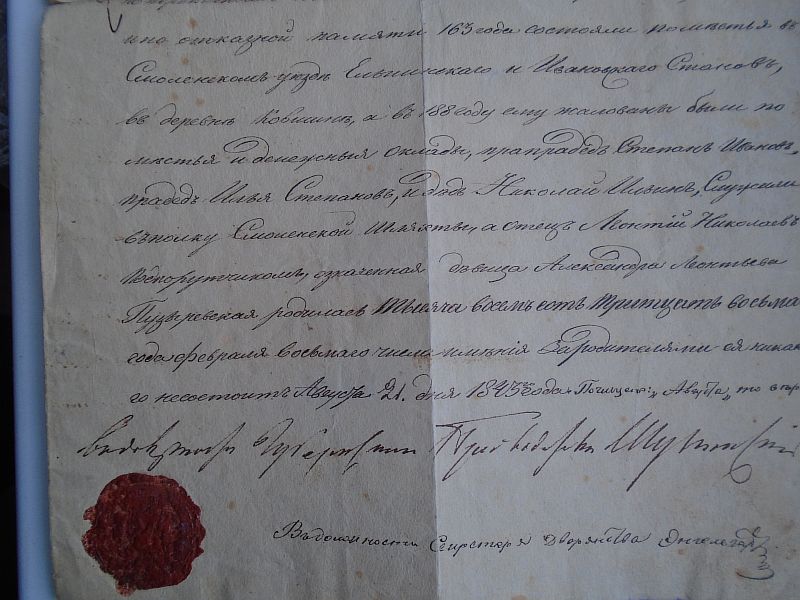 и по отказной памяти 163 года состояли поместья въ
Смоленскомъ уездѣ Ельнинскаго и Ивановскаго Становъ,
въ деревнѣ Ковшинѣ, а въ 188 году ему жалованы были по
местья и денежныя оклады, прапрадедъ Степанъ Ивановъ,
прадедъ Илья Степановъ, и дедъ Николай Ильинъ, Служили
въ полку Смоленской Шляхты, а отецъ Леонтій Николаевъ
Подпорутчикомъ, означенная девица Александра Леонтьева
Пузыревская родилась тысяча восемьсотъ тритцать восьма
года февраля восьмаго числа имѣнія за родителями ея никак
го несостоитъ Августа 21. дня 1843 года
Губернскій Предводитель
Въ должности Секретаря Дворянства